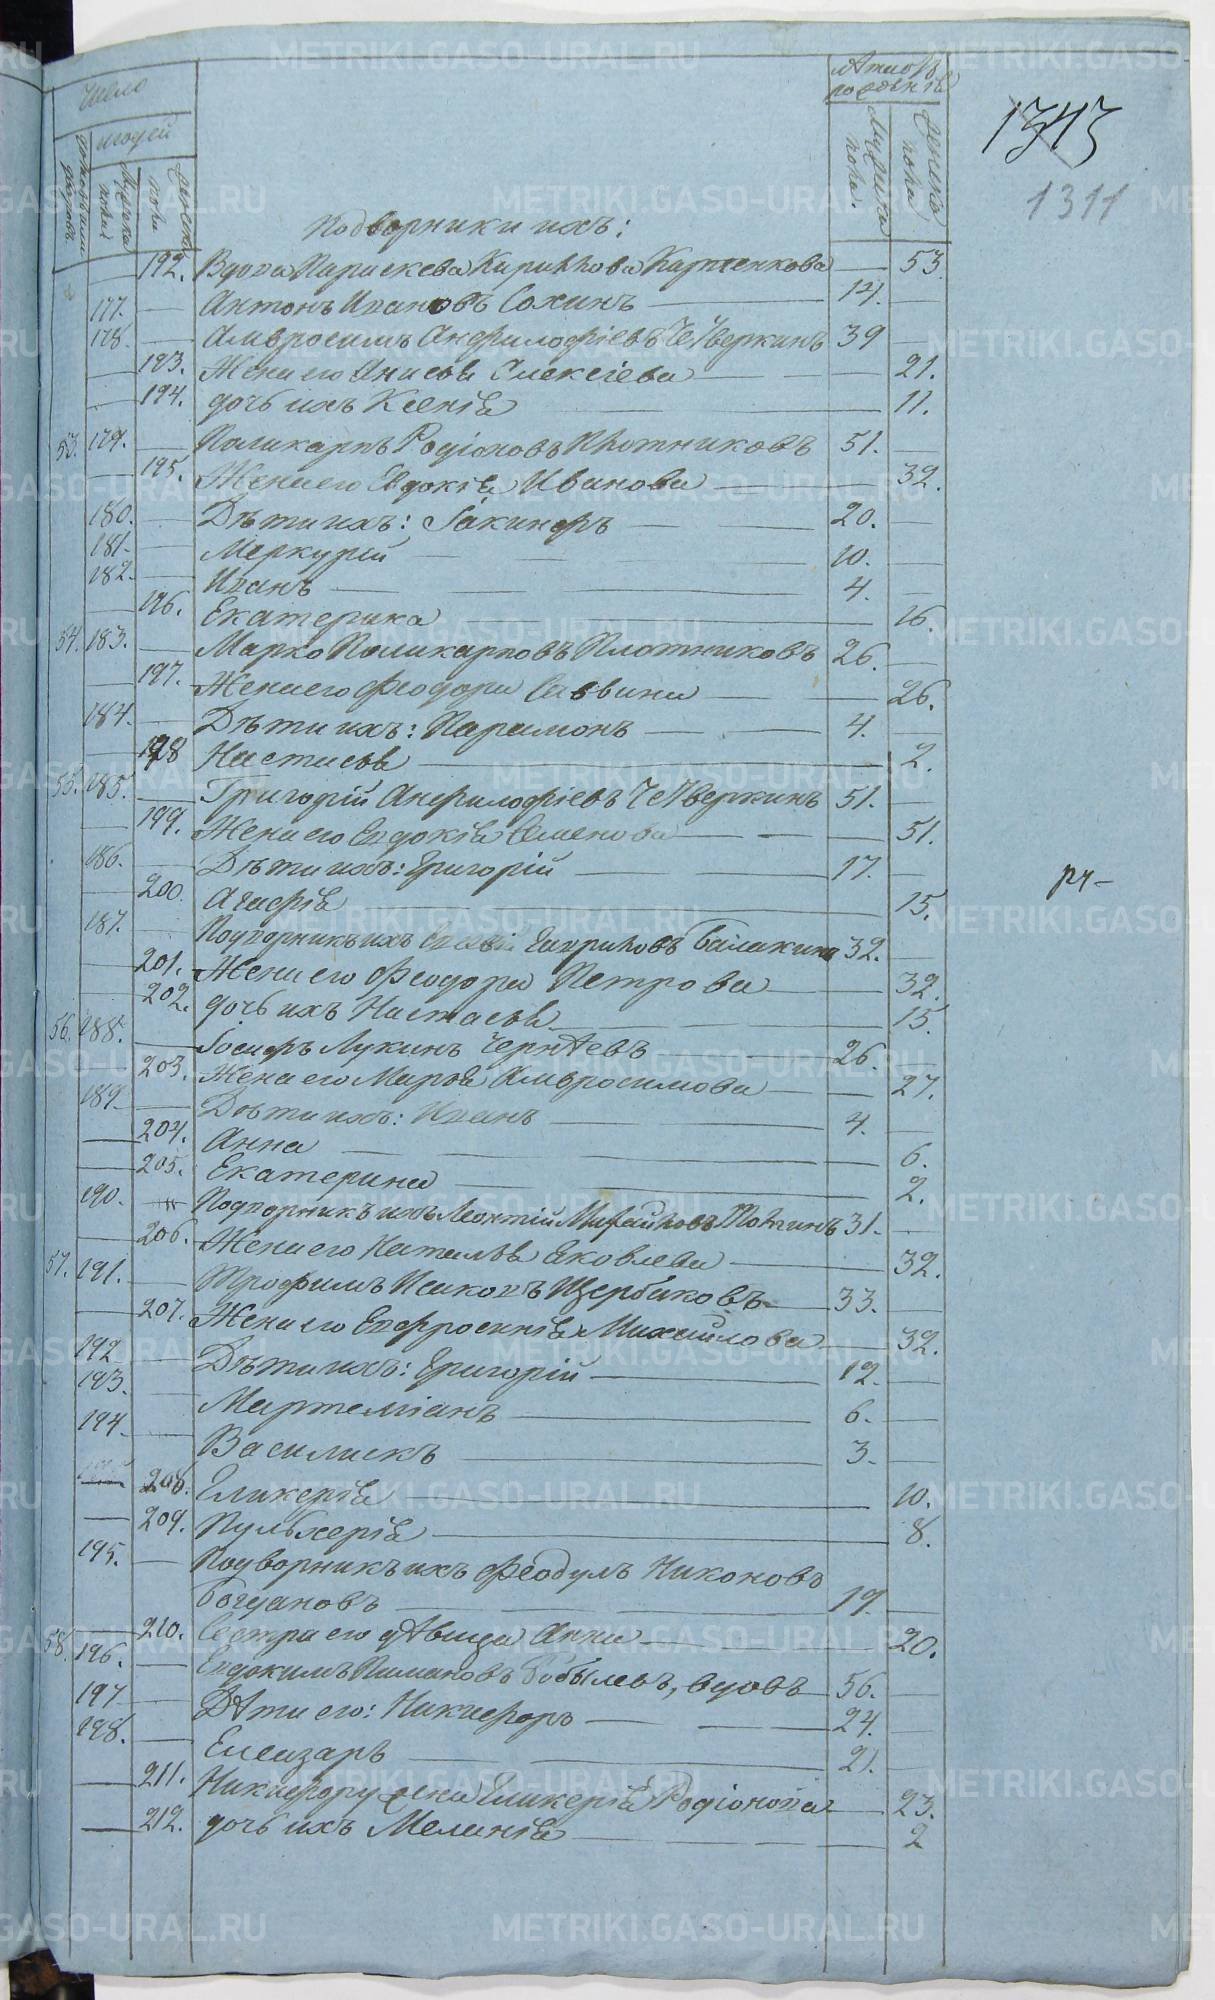 Число
людей
Лѣта отъ рожденія
домовъ или дворовъ
мужска пола
женска пола
Мужска пола.
Женска пола
1343
1311
Подворники ихъ:
192. Вдова Параскева Кириллова Карпенкова 53.
177. Антонъ Ивановъ Сохинъ 14.
178. Амвросимъ Анфилофіевъ Четверкинъ 39
193. Жена его Анисья Алексіева 21.
194. дочь ихъ Ксенія 11.
53. 179. Поликарпъ Родіоновъ Плотниковъ 51.
195. Жена его Евдокія Иванова 32.
180. Дѣти ихъ: Іакинфъ 20.
181. Меркурій 10.
182. Иванъ 4.
196. Екатерина 16.
54. 183. Марко Поликарповъ Плотниковъ 26.
197. Жена его Феодора Саввина 26.
184. Дѣти ихъ: Парамонъ 4.
198 Настасья 2.
55. 185. Григорій Анфилофіевъ Четверкинъ 51.
199. Жена его Евдокія Семенова 51.
186. Дѣти ихъ: Григорій 17.
200. Агафія 15.
187. Подворникъ ихъ Гавриловъ Балакинъ 32.
201. Жена его Феодора Петрова 32.
202. дочь ихъ Настасья 15.
56. 188. Іосифъ Лукинъ Черняевъ 26.
203. Жена его Марѳа Амвросимова 27.
189. Дѣти ихъ: Иванъ 4.
204. Анна 6.
205. Екатерина 2.
190. Подворникъ ихъ Леонтій Михайловъ 31.
206. Жена его Наталья Яковлева 32.
57. 191. Трофимъ Исаковъ Щербаковъ 33.
207. Жена его Евфросинія Михайлова 32.
192 Дѣти ихъ: Григорій 12.
193. Мартеміанъ 6.
194. Василискъ 3.
208. Гликерія 10.
209. Пульхерія 8.
195. Подворникъ ихъ Феодулъ Никоновъ
Богдановъ 19.
210. Сестра его дѣвица Анна 20.
58. 196. Евдокимъ Пимановъ Бобылевъ, вдовъ 56.
197 Дѣти его: Никифоръ 24.
198. Елеазаръ 21.
211. Никифору жена Гликерія Родіонова 23.
212. дочь ихъ Меланія 2
METRIKI.GASO-URAL.RU